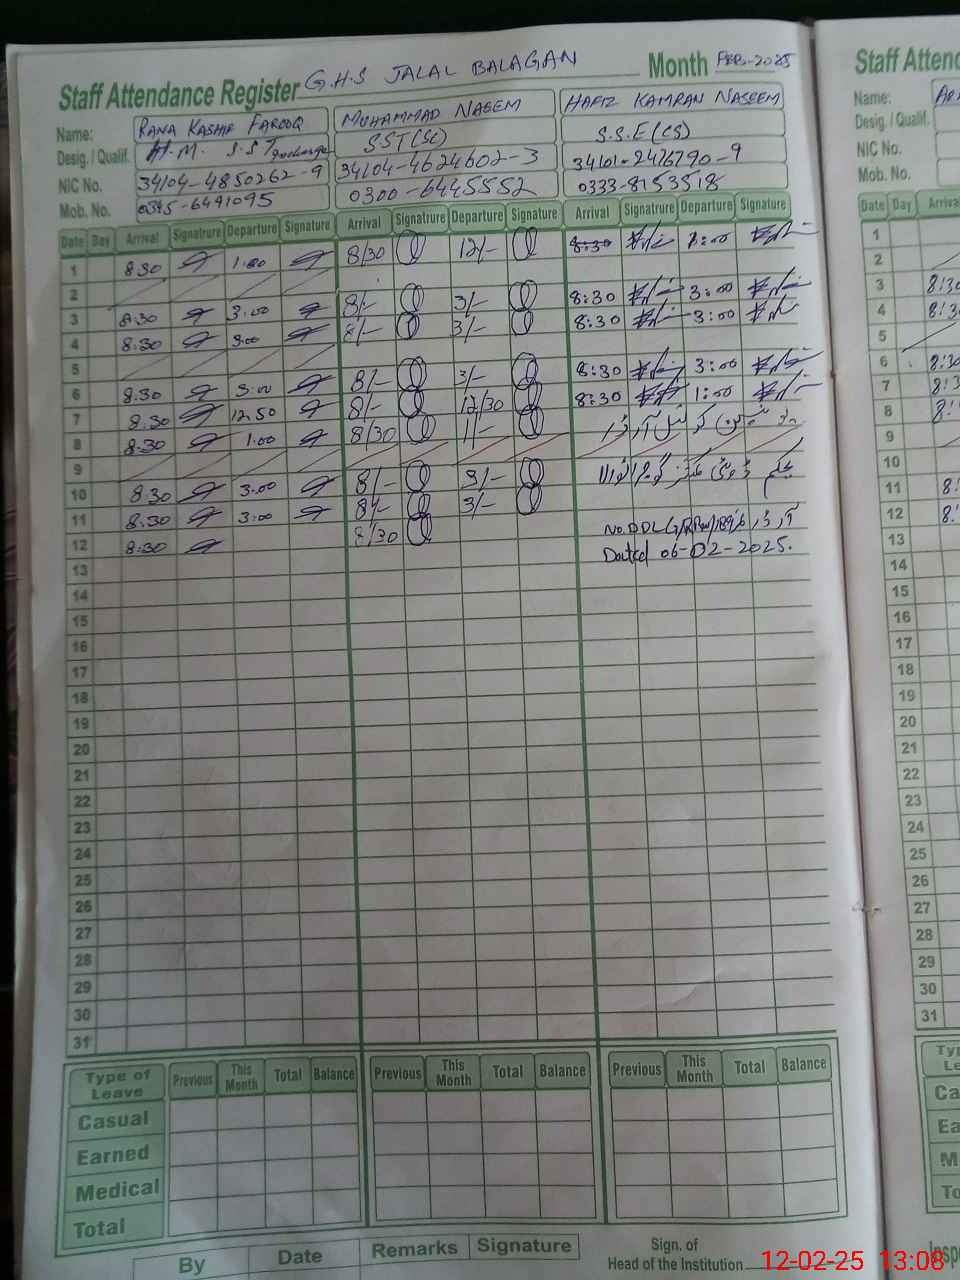 Staff Attendance Register G.H.S JALAL BALAGAN Month FEB-2025
Name: RANA KASHIF FAROOQ MUHAMMAD NAEEM HAFIZ KAMRAN NASEEM
Desig. / Qualif. H.M. S.S.T SST(Sc) S.S.E(CS)
NIC No. 34104-4850262-9 34104-4624602-3 34101-2476790-9
Mob. No. 0345-6491095 0300-6445552 0333-8153518
Date Day Arrival Signatrure Departure Signature Arrival Signatrure Departure Signature Arrival Signatrure Departure Signature
1 8:30 1:00 8/30 12/- 8:30 1:00
2
3 8:30 3:00 8/- 3/- 8:30 3:00
4 8:30 3:00 8/- 3/- 8:30 3:00
5
6 8:30 3:00 8/- 3/- 8:30 3:00
7 8:30 12:50 8/- 12/30 8:30 1:00
8 8:30 1:00 8/30 1/-
9
10 8:30 3:00 8/- 3/-
11 8:30 3:00 8/- 3/-
12 8:30 8/30
Dated 06-02-2025.
13
14
15
16
17
18
19
20
21
22
23
24
25
26
27
28
29
30
31
Type of Leave Previous This Month Total Balance Previous This Month Total Balance Previous This Month Total Balance
Casual
Earned
Medical
Total
By Date Remarks Signature
Sign. of
Head of the Institution
12-02-25 13:08
Staff Atten
Name:
Desig. / Qualif.
NIC No.
Mob. No.
Date Day Arrival
1
2
3 8:30
4 8:30
5
6 8:30
7
8
9
10
11
12
13
14
15
16
17
18
19
20
21
22
23
24
25
26
27
28
29
30
31